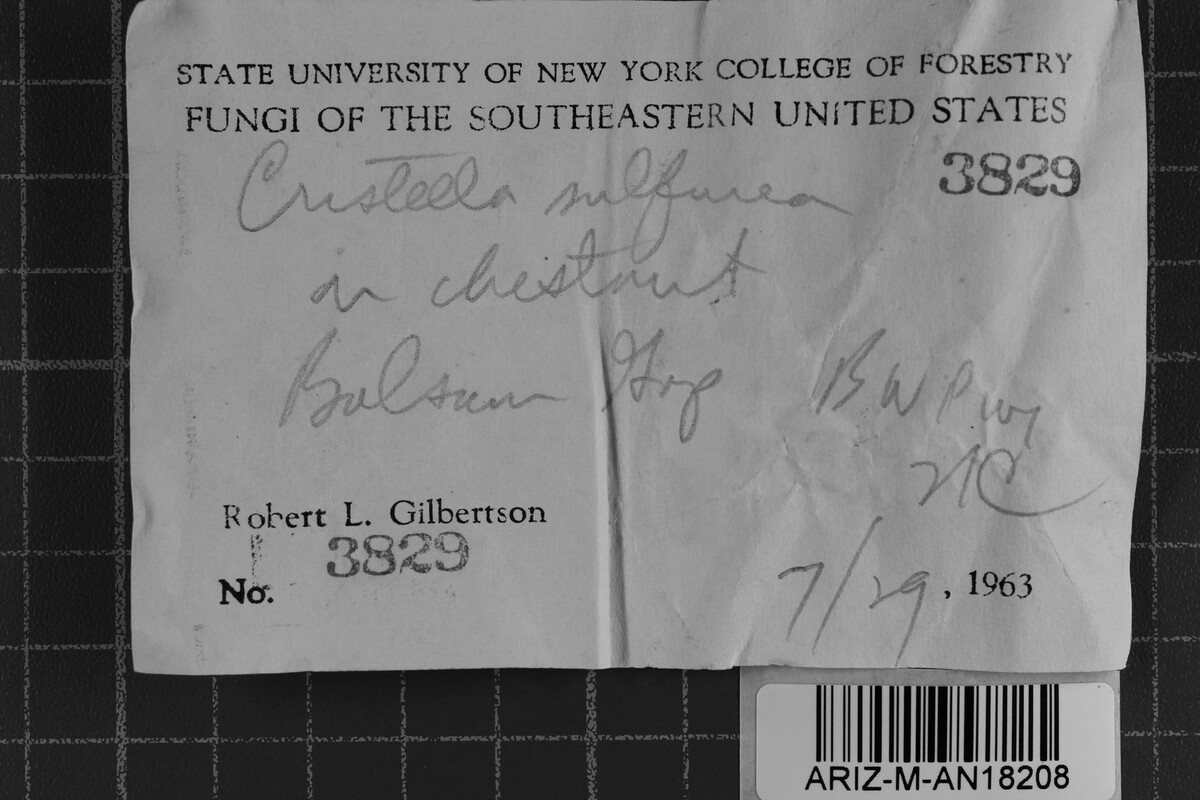 STATE UNIVERSITY OF NEW YORK COLLEGE OF FORESTRY
FUNGI OF THE SOUTHEASTERN UNITED STATES
3829
Cristella sulfurea
on chestnut
Balsam Gap B W Pwy
NC
Robert L. Gilbertson
No. 3829
7/29, 1963
ARIZ-M-AN18208